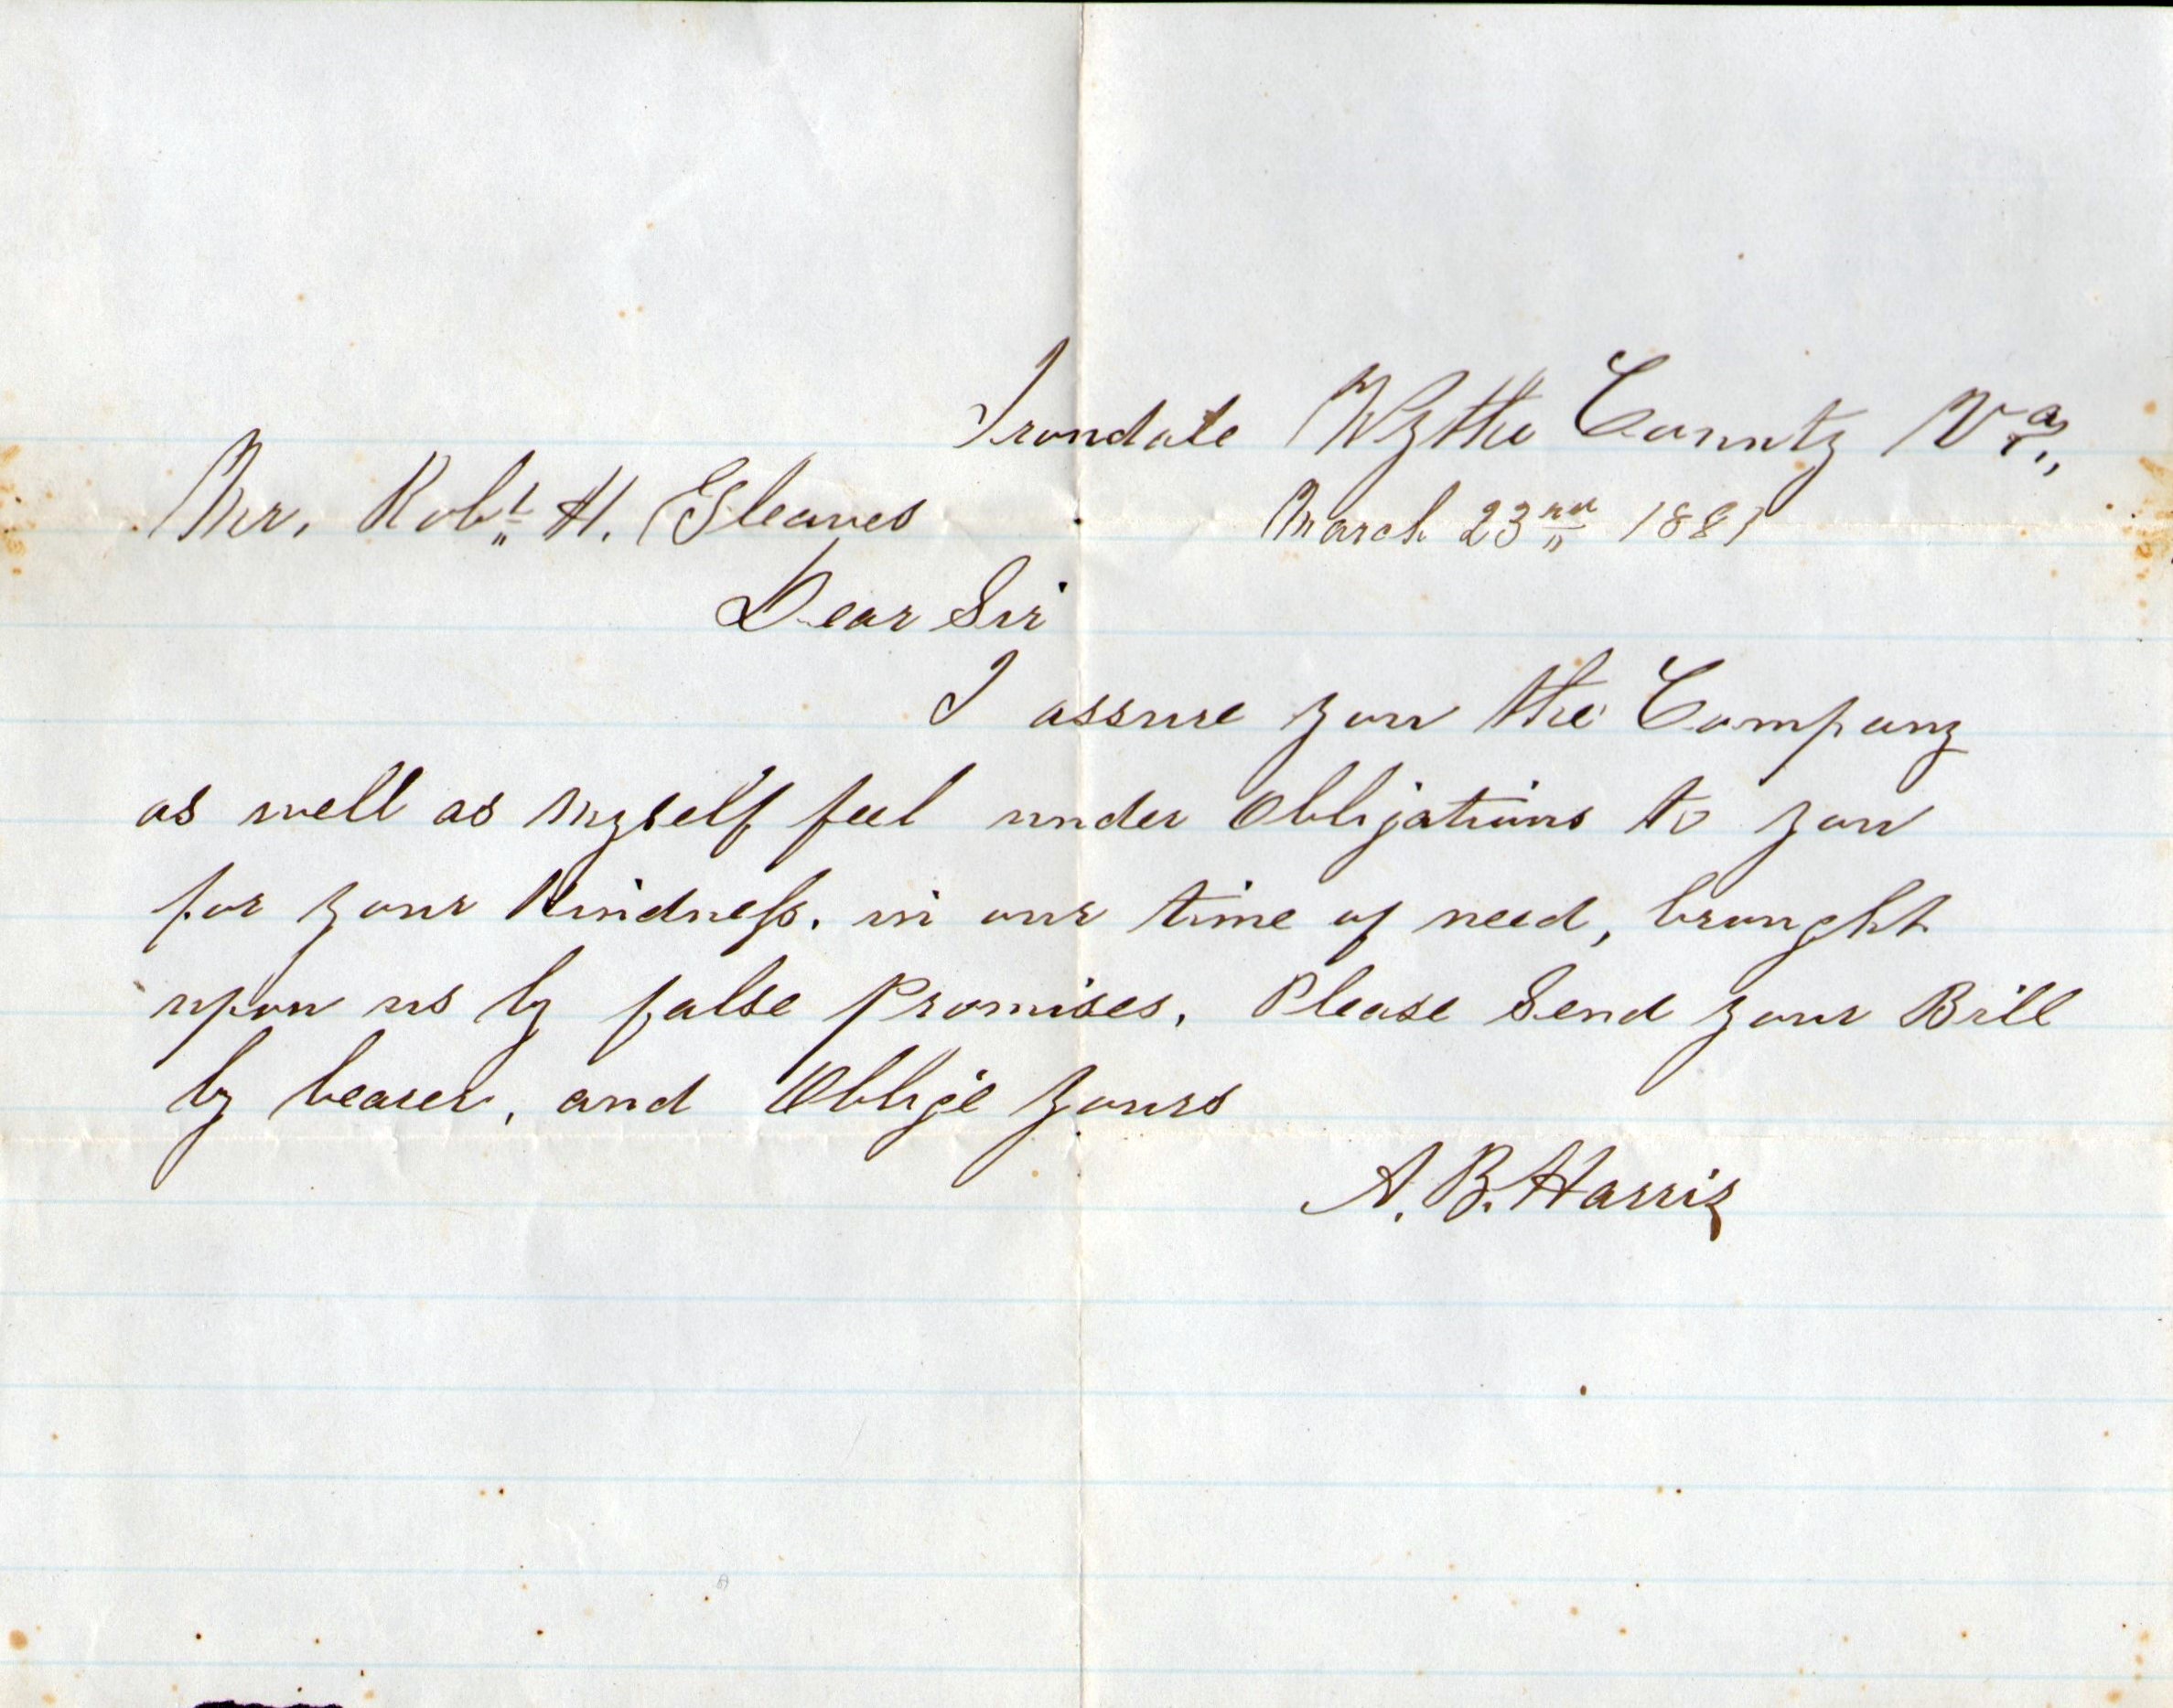 Irondale Wythe County Va.,
Mr. Robt. H. Gleaves
March 23rd 1881
Dear Sir
I assure you the Company
as well as myself feel under Obligations to you
for your Kindness. in our time of need, brought
upon us by false Promises. Please Send your Bill
by bearer, and Oblige yours
A. B. Harris